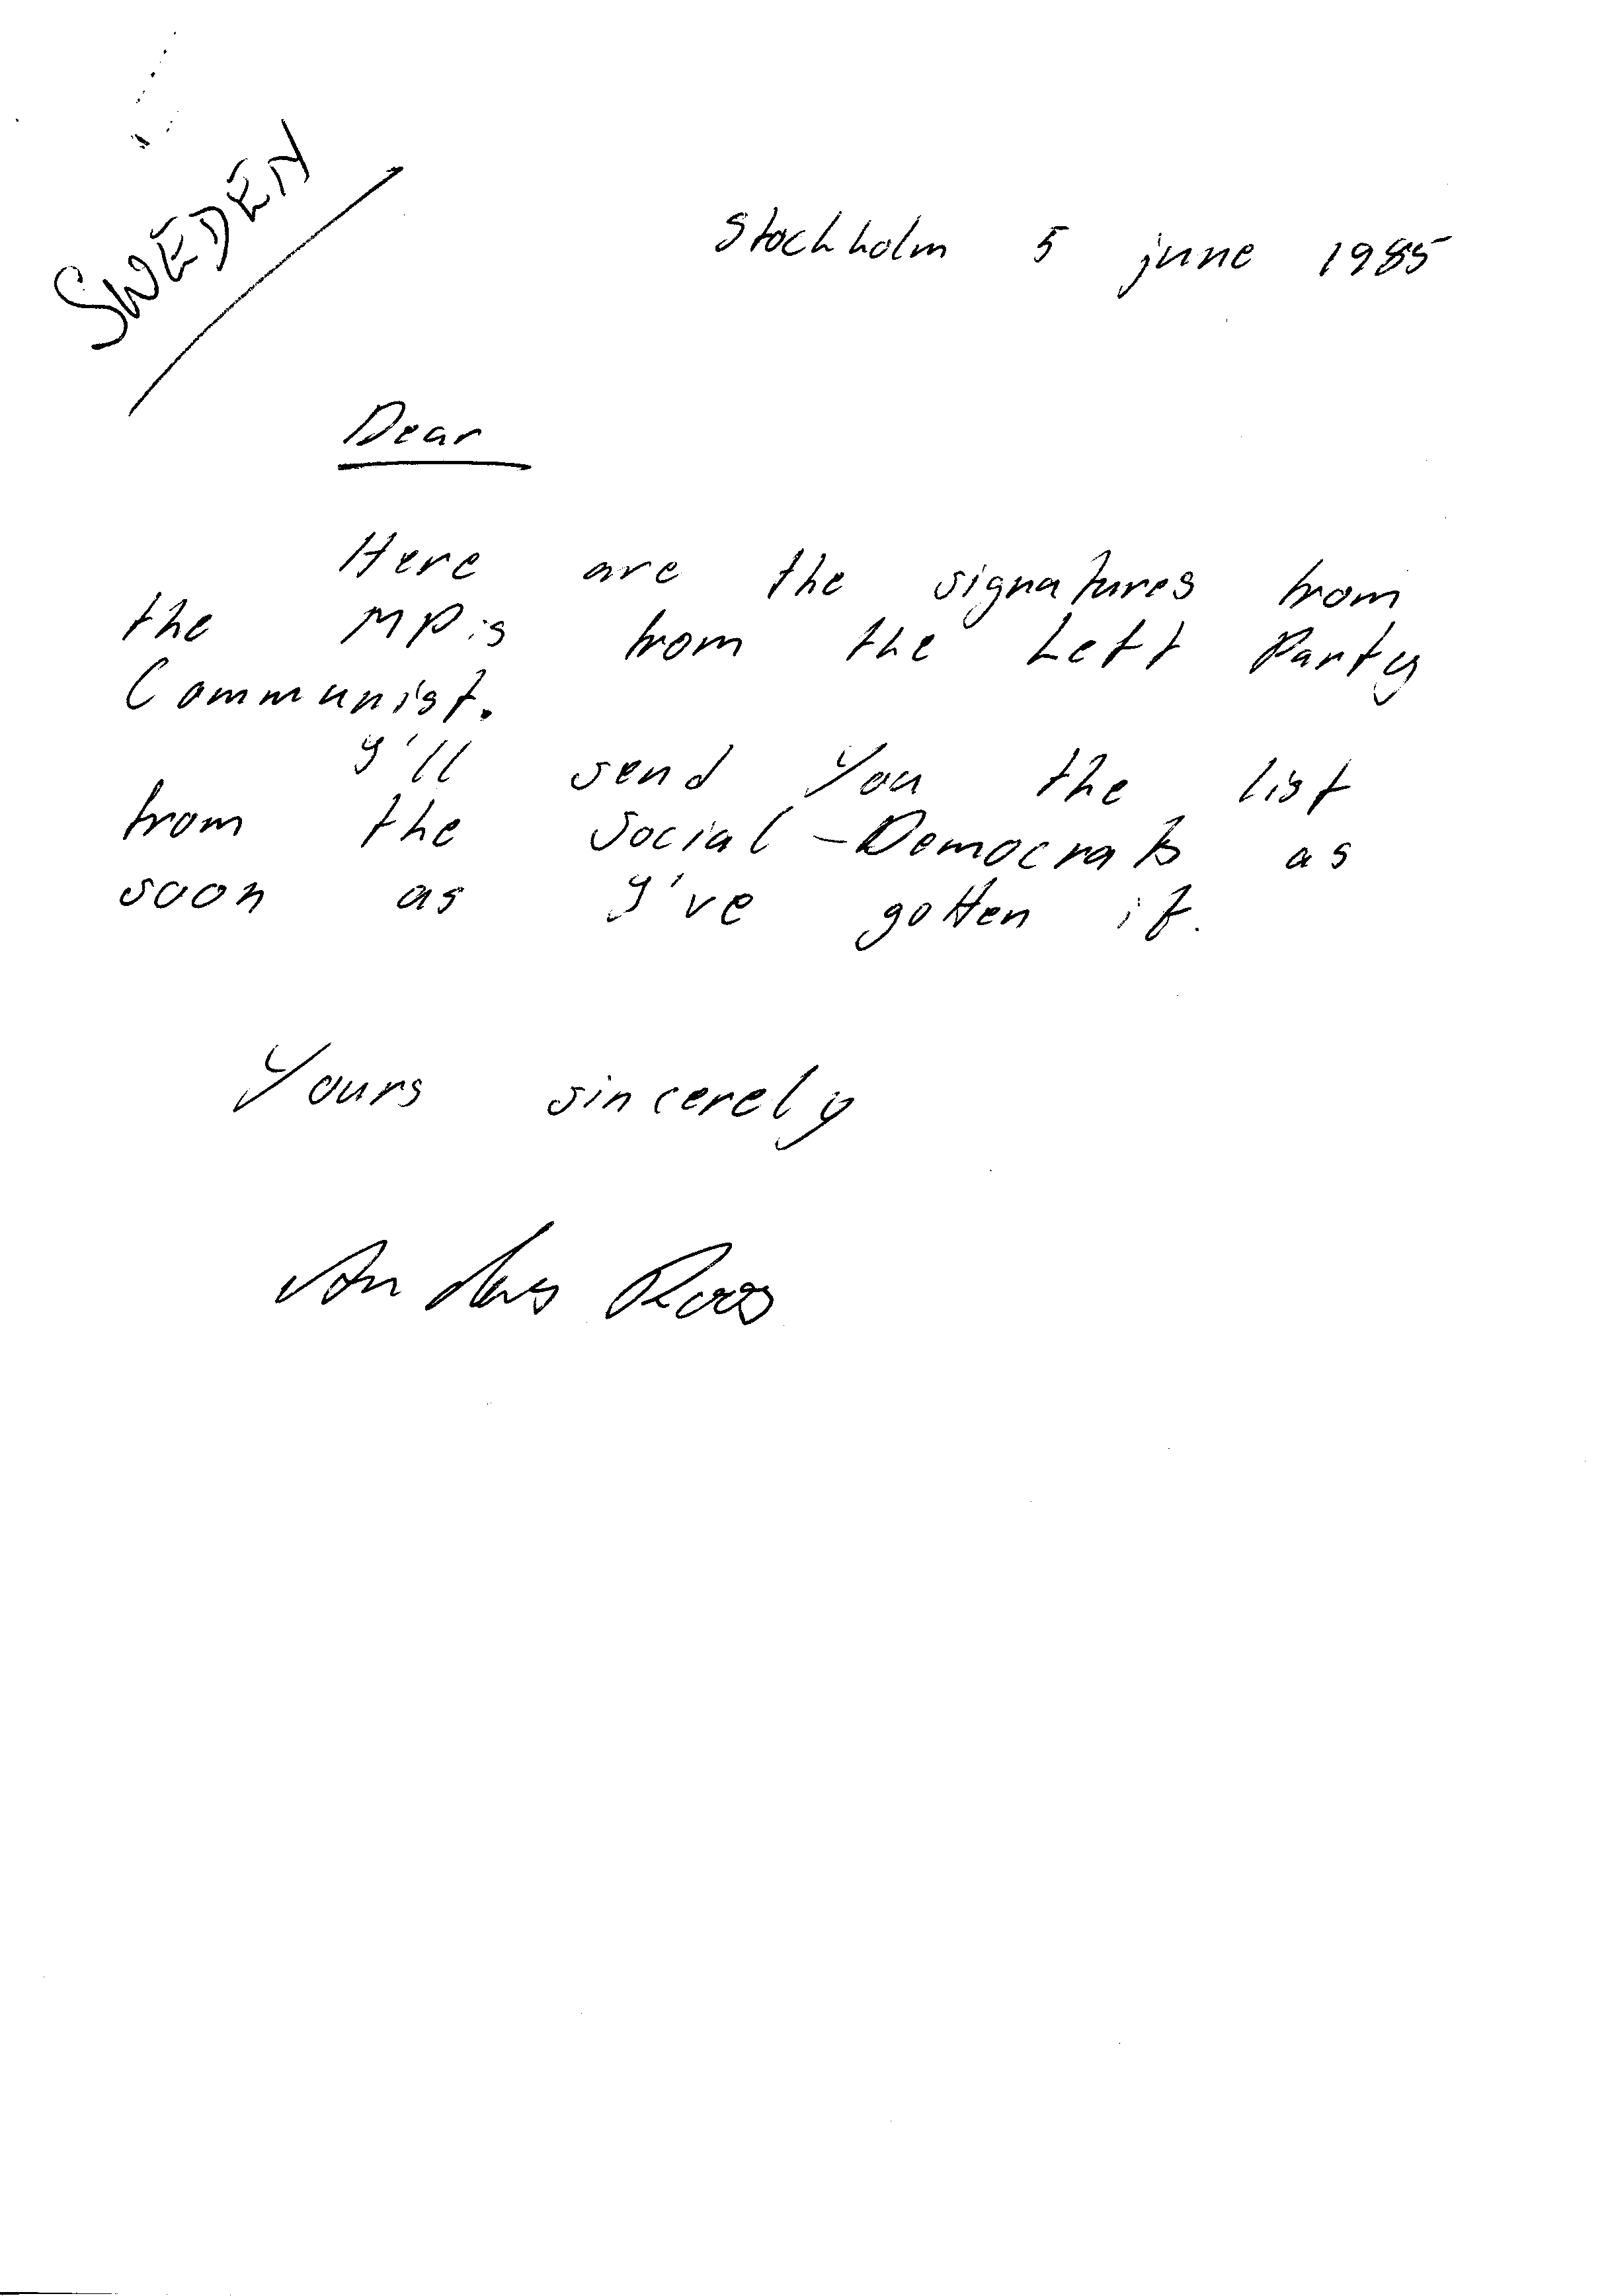 SWEDEN
Stockholm 5 june 1985
Dear
Here are the signatures from
the MP:s from the Left Party
Communist.
I'll send You the list
from the Social-Democrats as
soon as I've gotten it.
Yours sincerely
Anders Roos